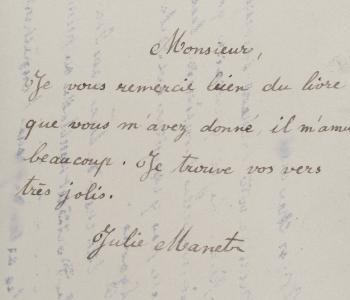 Monsieur,
Je vous remercie bien du livre
que vous m'avez donné, il m'amu
beaucoup. Je trouve vos vers
très jolis.
Julie Manet